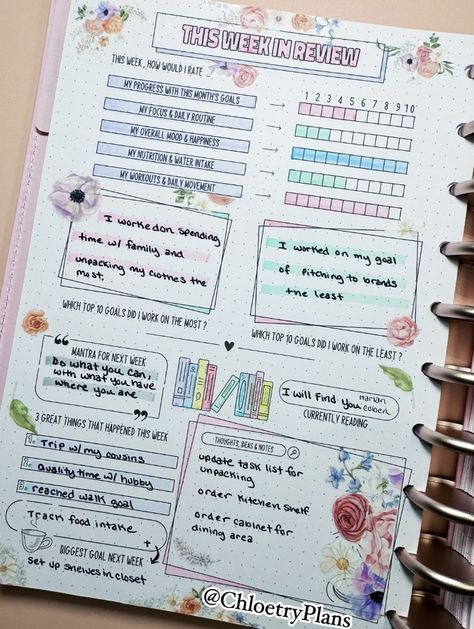 THIS WEEK IN REVIEW
THIS WEEK, HOW WOULD I RATE ...
1 2 3 4 5 6 7 8 9 10
MY PROGRESS WITH THIS MONTH'S GOALS
MY FOCUS & DAILY ROUTINE
MY OVERALL MOOD & HAPPINESS
MY NUTRITION & WATER INTAKE
MY WORKOUTS & DAILY MOVEMENT
I worked on spending
time w/ family and
unpacking my clothes the
most.
I worked on my goal
of pitching to brands
the least
WHICH TOP 10 GOALS DID I WORK ON THE MOST ?
WHICH TOP 10 GOALS DID I WORK ON THE LEAST ?
MANTRA FOR NEXT WEEK
Do what you can,
with what you have
where you are
I will find you Harlan
Coben
CURRENTLY READING
3 GREAT THINGS THAT HAPPENED THIS WEEK
1. Trip w/ my cousins
2. quality time w/ hubby
3. reached walk goal
Track food intake
+
BIGGEST GOAL NEXT WEEK
set up shelves in closet
THOUGHTS, IDEAS & NOTES
update task list for
unpacking
order kitchen shelf
order cabinet for
dining area
@ChloetryPlans